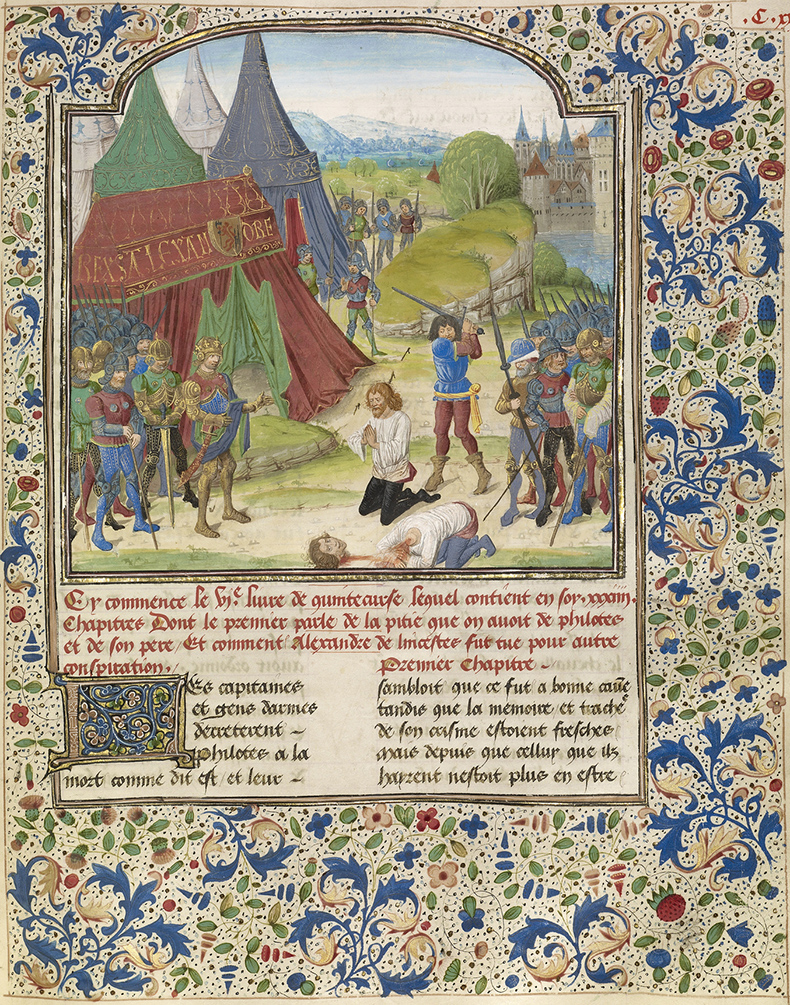 .C.
Cy commence le vj.e liure de quintecurse lequel contient en soy .xxxiij.
Chapitres Dont le premier parle de la pitie que on auoit de philotes
et de son pere, Et comment Alexandre de lincestes fut tue pour autre
conspiration.
Premier Chapitre
Les capitaines
et gens darmes
decreterent
philotes a la
mort comme dit est et leur
sambloit que ce fut a bonne cause
tandis que la memoire et trache
de son crisme estoient fresches
Mais depuis que cellui que ilz
hayrent nestoit plus en estre